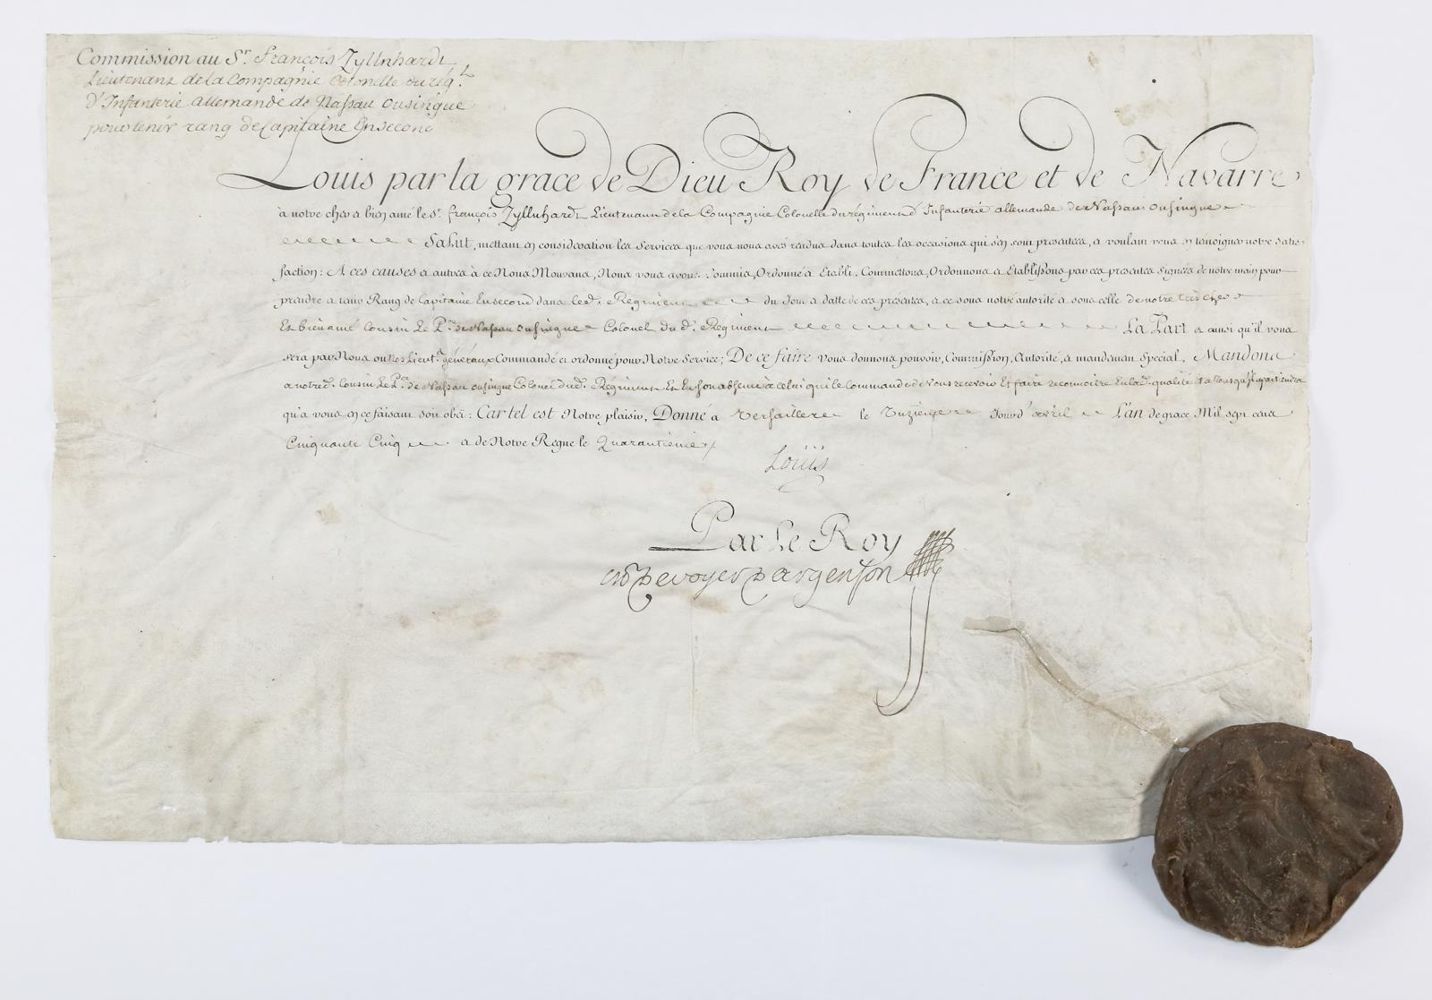 Commission au Sr. François Zyllnhardt
Lieutenant de la Compagnie Colonelle du régt.
D'Infanterie allemande de Nassau Ousingue
pour tenir rang de Capitaine En second
Louis par la grace de Dieu Roy de France et de Navarre
à notre cher & bien amé le Sr. françois Zyllnhardt Lieutenant de la Compagnie Colonelle du régiment d'Infanterie allemande de Nassau Ousingue
Salut, mettant en consideration les services que vous nous avés rendus dans toutes les occasions qui s'en sont presentées, & voulant vous en temoigner notre satis-
faction: A ces causes & autres à ce Nous Mouvans, Nous vous avons Commis, Ordonné & Etabli, Commettons, Ordonnons & Etablissons par ces presentes signées de notre main pour
prendre & tenir Rang de Capitaine En second dans led. Regiment du Jour & datte de ces presentes, & ce sous notre autorité & sous celle de notre tres cher
Et bien amé Cousin Le Pce. de Nassau Ousingue Colonel du d. Regiment La Part & ainsi qu'il vous
sera par Nous ou nos Lieuts. généraux Commandé et ordonné pour Notre Service; De ce faire vous donnons pouvoir, Commission, Autorité, & mandement Special. Mandons
a notred. Cousin Le Pce. de Nassau Ousingue Colonel dud. Regiment Et En son absence a celui qui le Commande de vous recevoir Et faire reconnoitre En lad. qualité & a tous qu'il apartiendra
qu'a vous en ce faisant soit obéi: Car tel est Notre plaisir. Donné a Versailles le Unzieme Jour d'avril L'an de grace Mil sept cens
Cinquante Cinq & de Notre Regne le Quarantieme
Louis
Par Le Roy
De voyer D'argenson